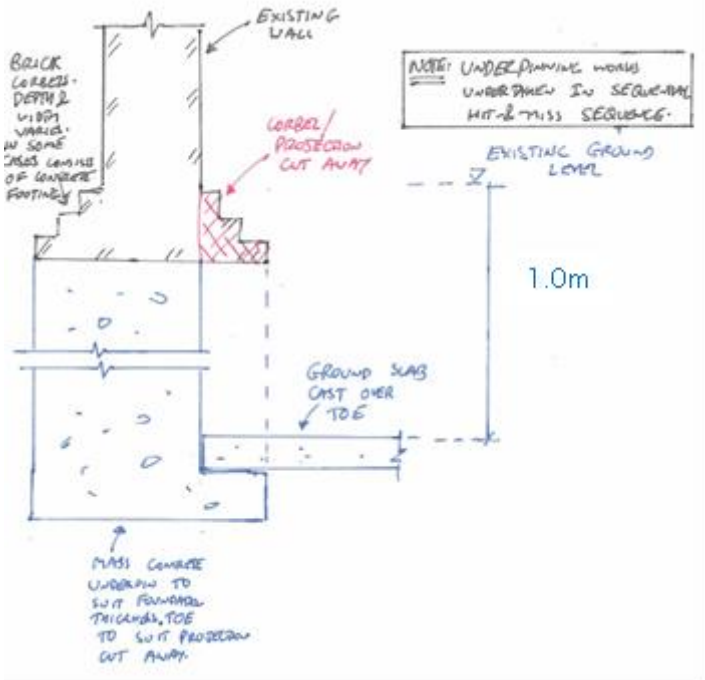 EXISTING
WALL
BRICK
CORBELS.
DEPTH &
WIDTH
VARIES.
IN SOME
CASES CONSIST
OF CONCRETE
FOOTING
CORBEL/
PROJECTION
CUT AWAY
NOTE: UNDERPINNING WORKS
UNDERTAKEN IN SEQUENTIAL
HIT & MISS SEQUENCE.
EXISTING GROUND
LEVEL
1.0m
GROUND SLAB
CAST OVER
TOE
MASS CONCRETE
UNDERPIN TO
SUIT FOUNDATION
THICKNESS. TOE
TO SUIT PROJECTION
CUT AWAY.